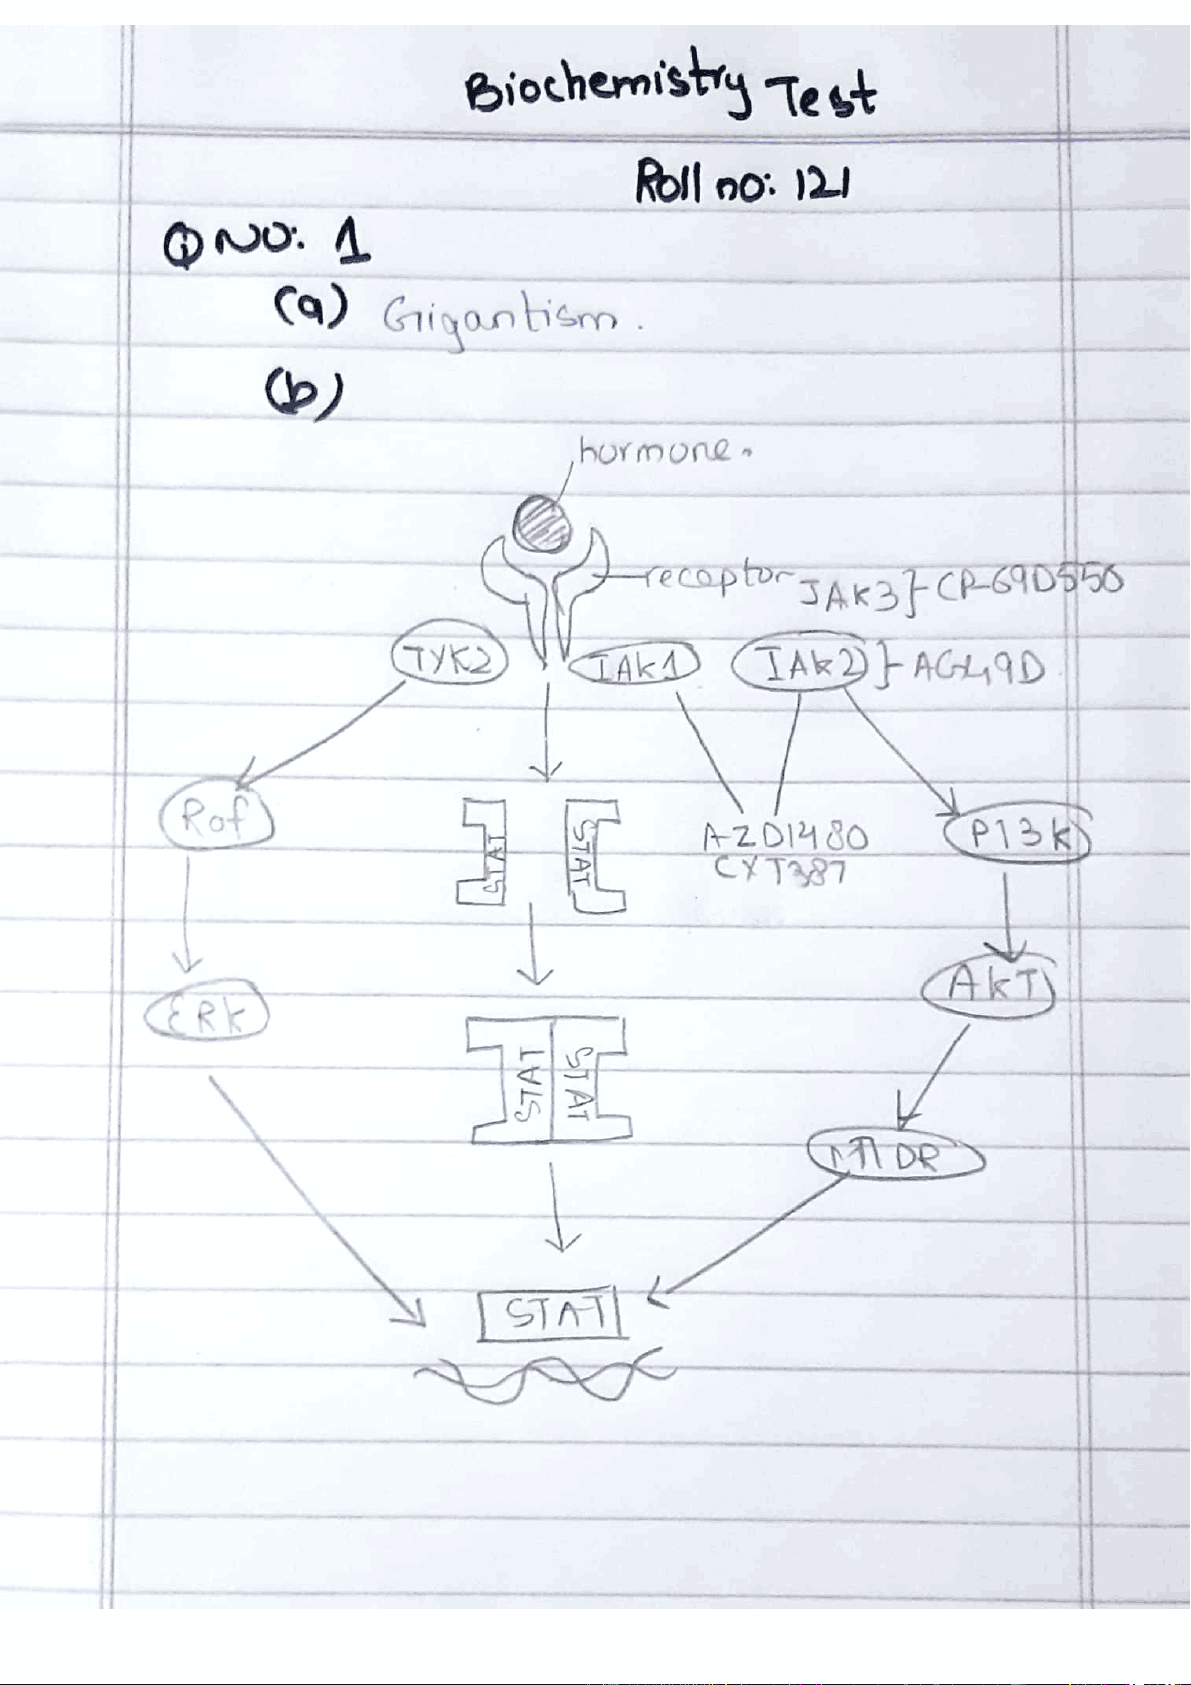 Biochemistry Test
Roll no: 121
Q NO: 1
(a) Gigantism.
(b)
hormone.
receptor JAK3}-CP-690550
TYK2 JAK1 JAK2}-AG490
Raf STAT STAT AZD1480 PI3K
CYT387
ERK AKT
STAT STAT
STAT